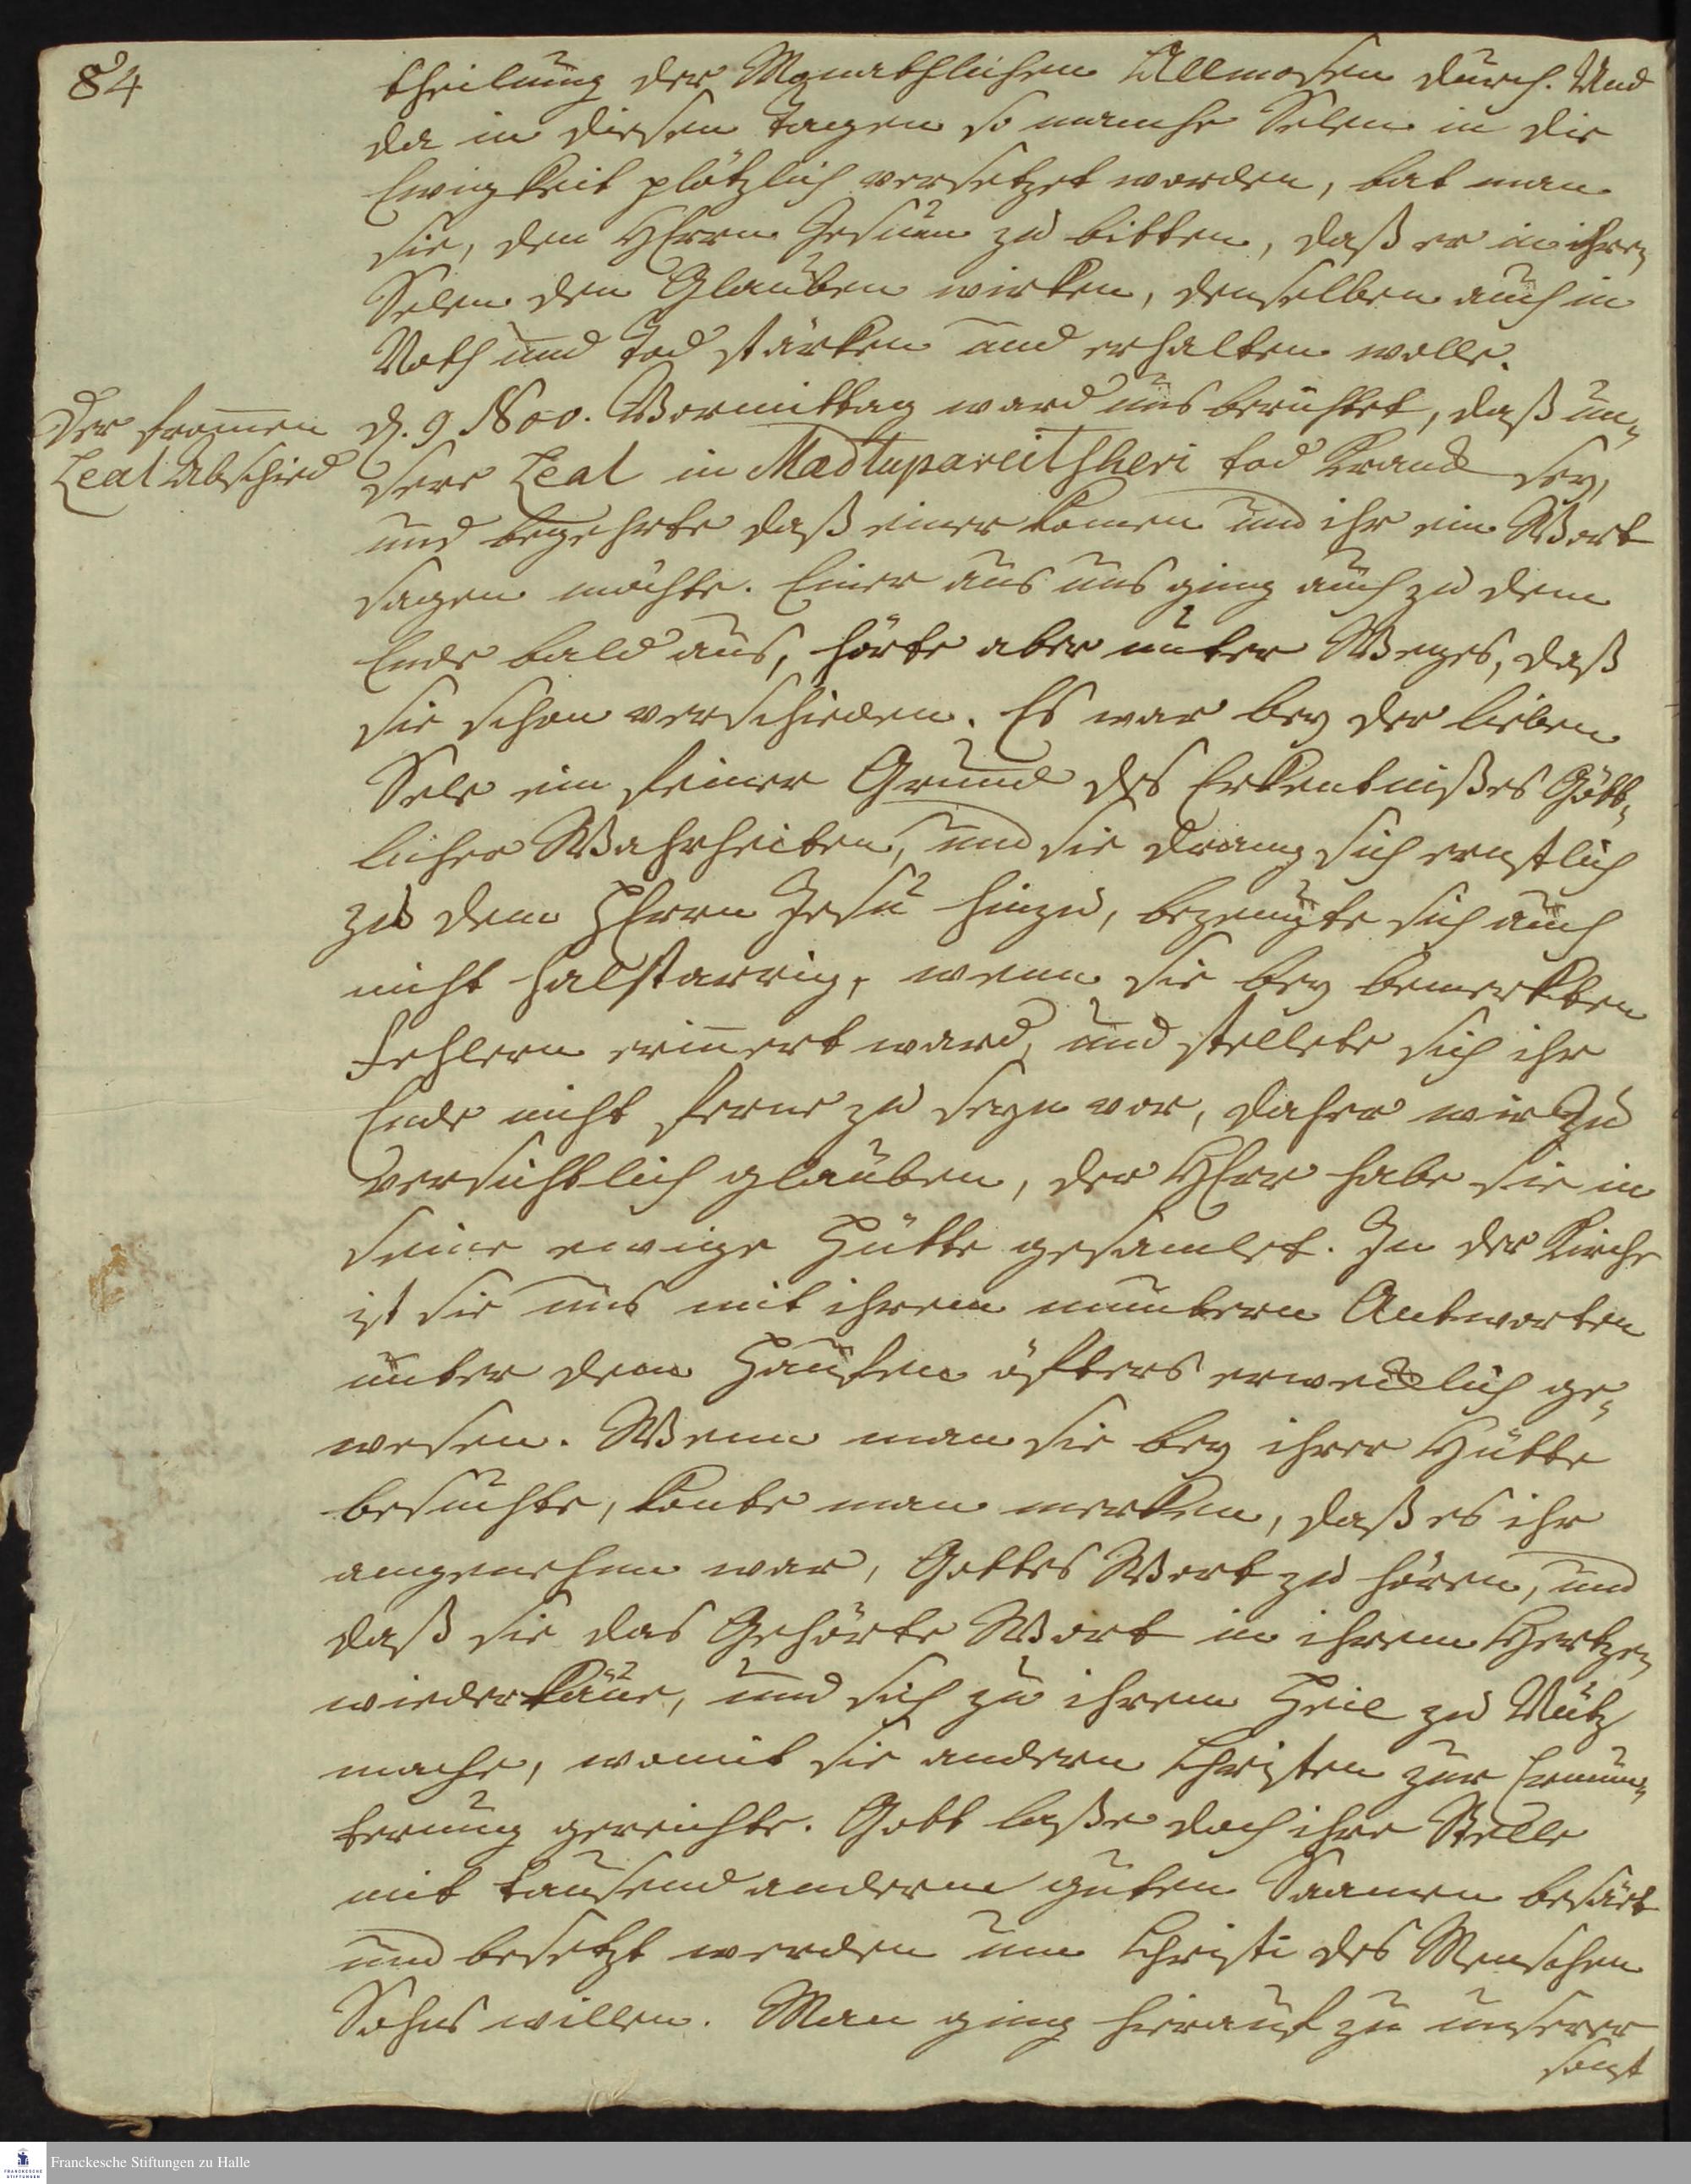 84
theilung der Monathlichen Allmosen durch. Und
da in diesen Tagen so manche Selen in die
Ewigkeit plötzlich versetzet worden, bat man
sie, den HErrn Jesum zu bitten, daß er in ihren
Selen den Glauben wirken, denselben auch in
Noth und Tod stärken und erhalten wolle.
Der from̅en
Leal Abschied
d. 9 Nov. Vormittag ward uns berichtet, daß un-
sere Leal in Madtupareitsheri tod kranck sey,
und begehrte daß einer komen und ihr ein Wort
sagen möchte. Einer aus uns ging auch zu dem
Ende bald aus, hörte aber unter Weges, daß
sie schon verschieden. Es war bey der lieben
Sele ein feiner Grund des Erkentnißes Gött-
licher Wahrheiten, und sie drang sich ernstlich
zu dem HErrn Jesu hinzu, bezeugte sich auch
nicht halsstarrig, wenn sie bey bemerkten
Fehlern erin̅ert ward, und stellete sich ihr
Ende nicht ferne zu seyn vor, daher wir zu
versichtlich glauben, der HErr habe sie in
seine ewige Hütte gesamlet. In der Kirche
ist sie uns mit ihren muntern Antworten
unter dem Haufen öfters erwecklich ge-
wesen. Wenn man sie bey ihrer Hütte
besuchte, konte man merken, daß es ihr
angenehm war, Gottes Wort zu hören, und
daß sie das Gehörte Wort in ihrem Hertzen
wiederkäue, und sich zu ihrem Heil zu Nutz
mache, womit sie andern Christen zur Ermun-
terung gereichte. Gott laße doch ihre Stelle
mit tausend anderm guten Saamen besäet
und besetzt werden um Christi des Menschen
Sohns willen. Man ging hierauf zu unserer
sonst
Franckesche Stiftungen zu Halle